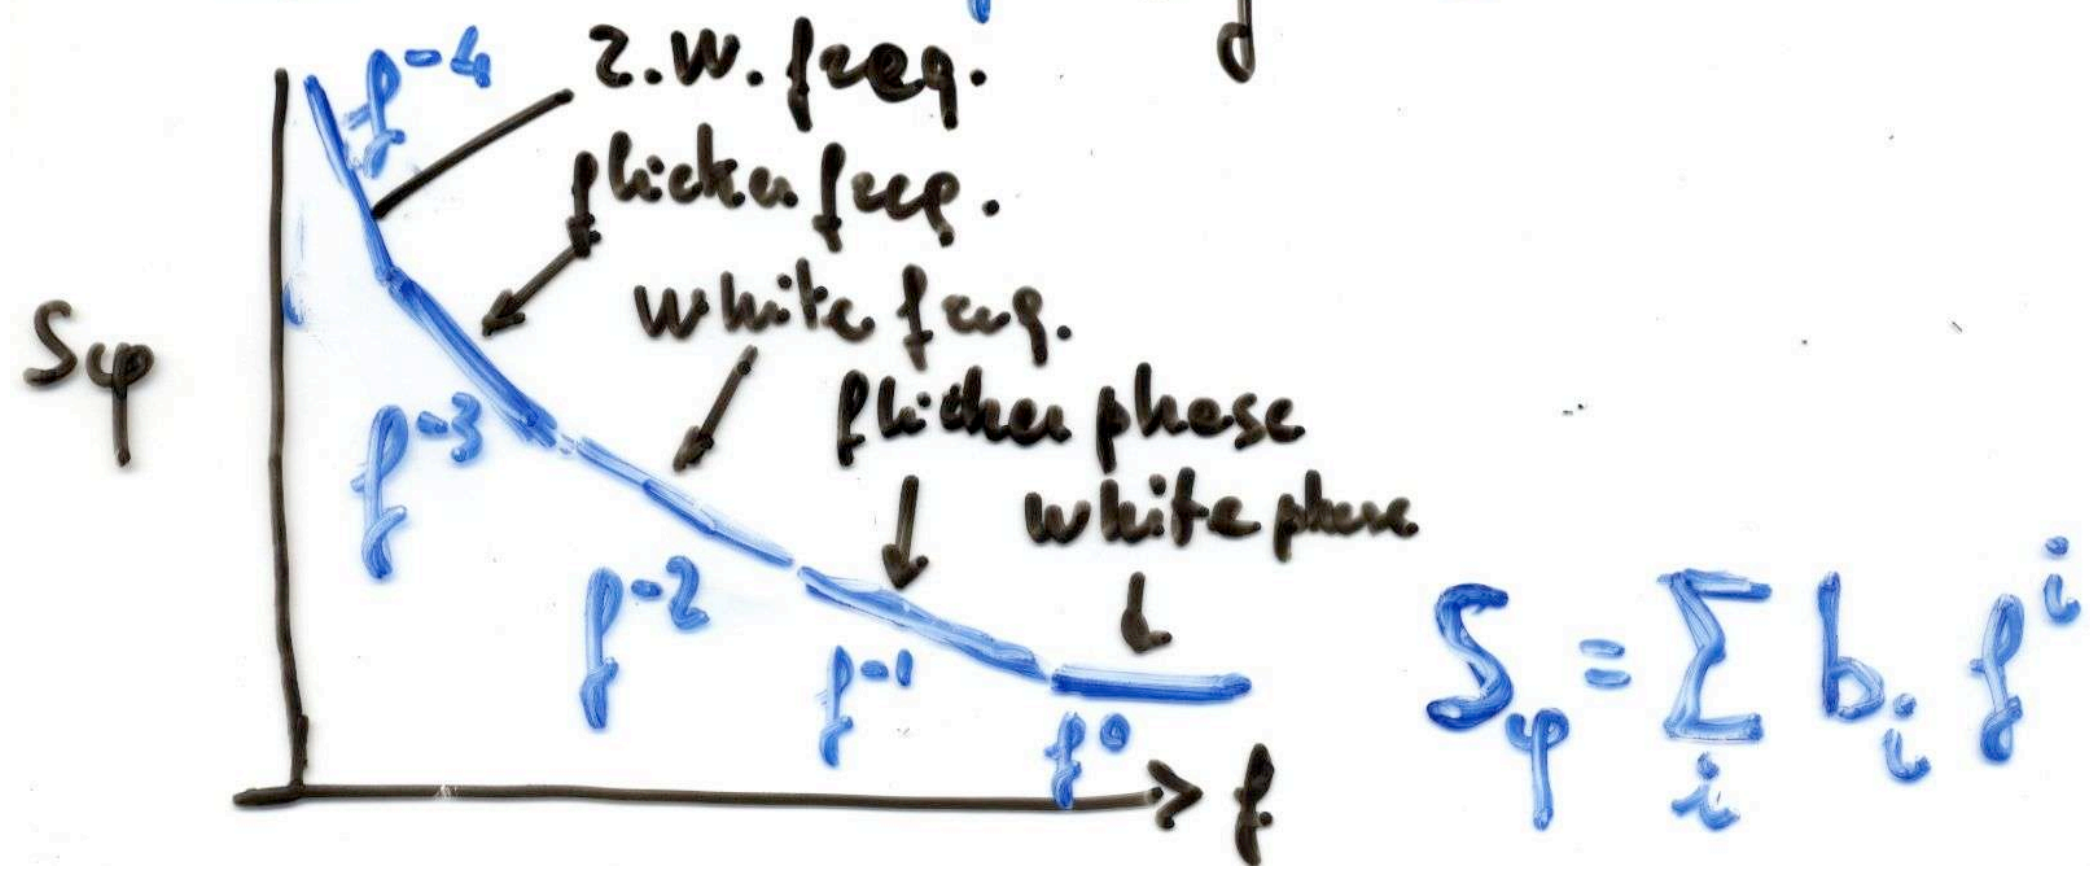 f⁻⁴
r.w. freq.
flicker freq.
white freq.
Sφ
flicker phase
f⁻³
white phase
f⁻²
f⁻¹
f⁰
f
Sφ = Σᵢ bᵢ fⁱ